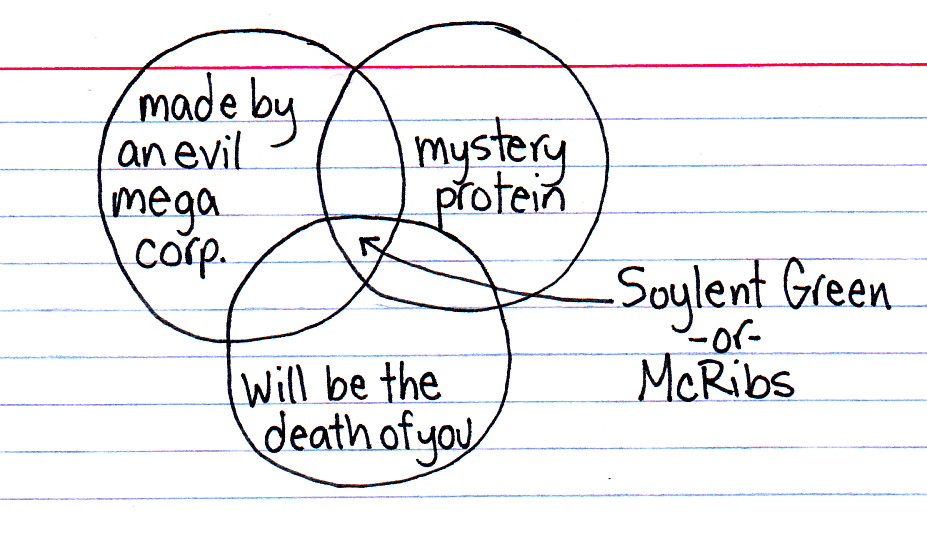 made by
an evil
mega
corp.
mystery
protein
Soylent Green
-or-
McRibs
will be the
death of you